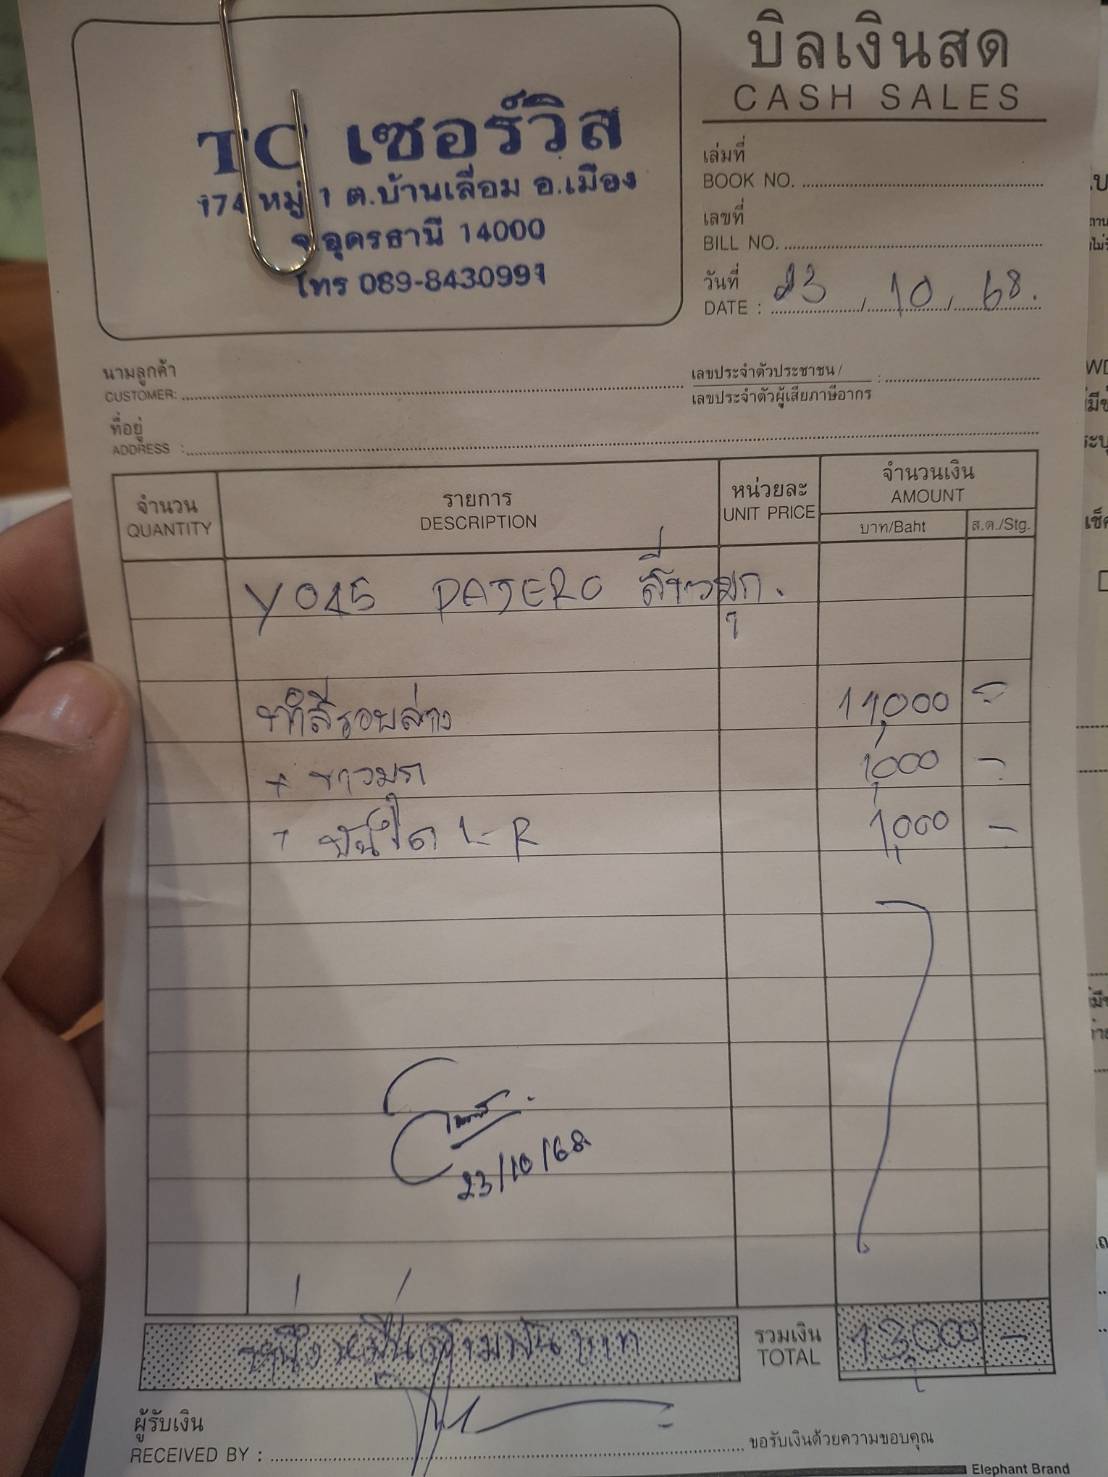 บิลเงินสด
CASH SALES
TC เซอร์วิส
174 หมู่ 1 ต.บ้านเลื่อม อ.เมือง
จ.อุดรธานี 14000
โทร 089-8430991
เล่มที่
BOOK NO.
เลขที่
BILL NO.
วันที่
DATE : 23 / 10 / 68.
นามลูกค้า
CUSTOMER:
เลขประจำตัวประชาชน /
เลขประจำตัวผู้เสียภาษีอากร :
ที่อยู่
ADDRESS :
จำนวน รายการ หน่วยละ จำนวนเงิน
QUANTITY DESCRIPTION UNIT PRICE AMOUNT
บาท/Baht ส.ต./Stg.
PAJERO สีขาวมุก.
ทำสีรอบล่าง 11,000 -
+ ขาวมุก 1,000 -
+ บันได L-R 1,000 -
23/10/68
หนึ่งหมื่นสามพันบาท
รวมเงิน 13,000 -
TOTAL
ผู้รับเงิน
RECEIVED BY : ขอรับเงินด้วยความขอบคุณ
Elephant Brand